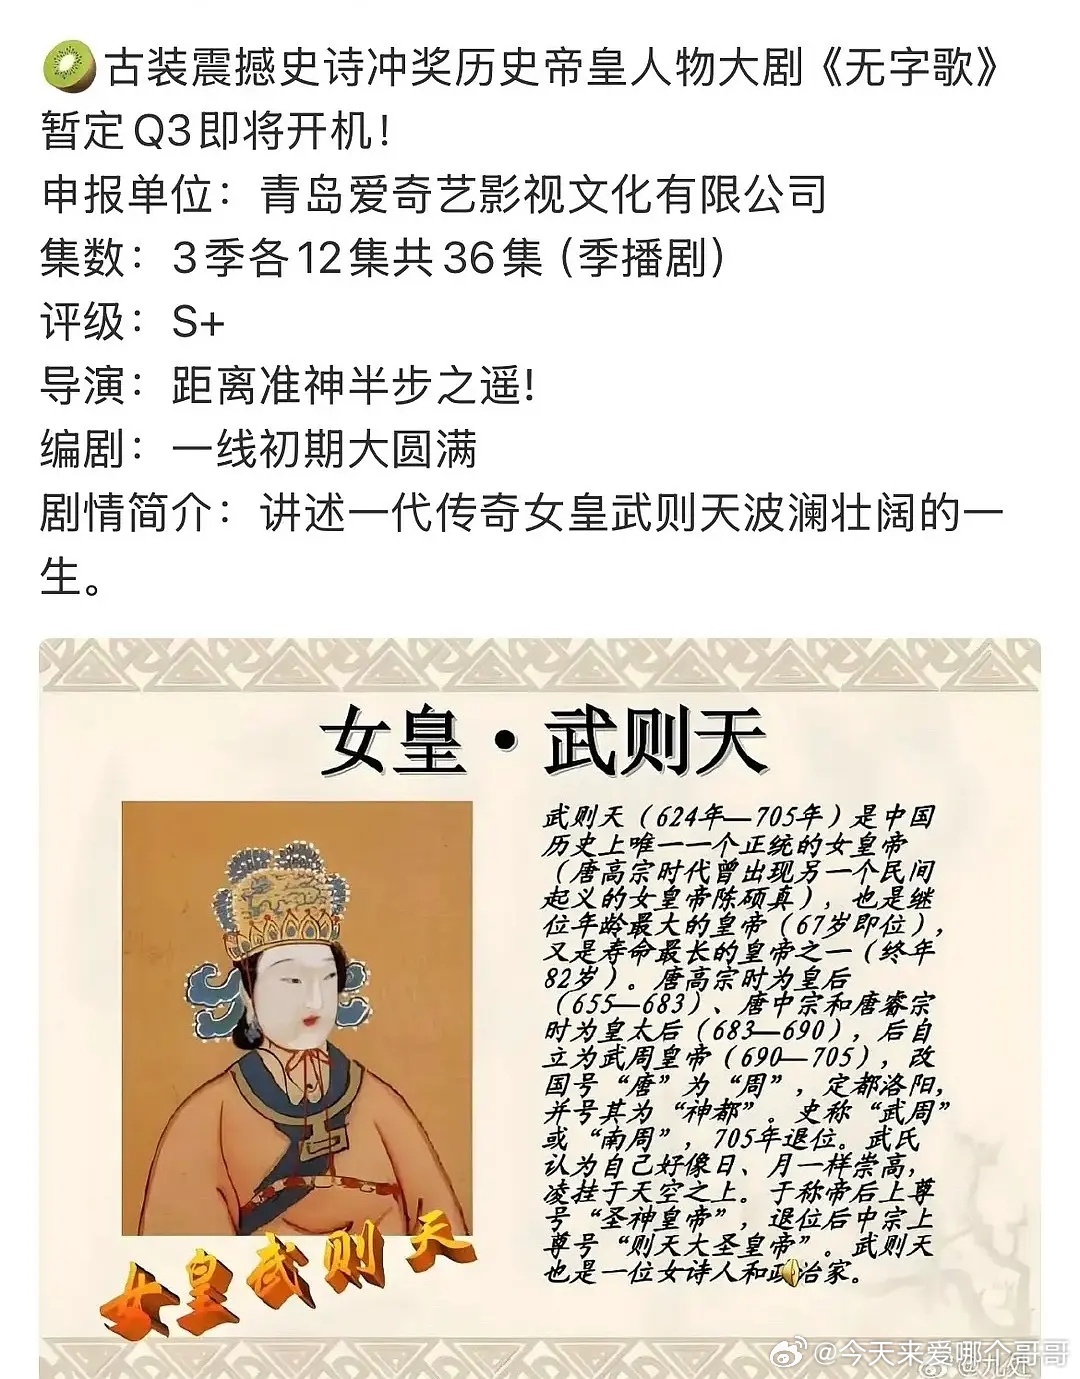 古装震撼史诗冲奖历史帝皇人物大剧《无字歌》
暂定Q3即将开机！
申报单位：青岛爱奇艺影视文化有限公司
集数：3季各12集共36集（季播剧）
评级：S+
导演：距离准神半步之遥!
编剧：一线初期大圆满
剧情简介：讲述一代传奇女皇武则天波澜壮阔的一
生。
女皇·武则天
武则天（624年—705年）是中国
历史上唯一一个正统的女皇帝
（唐高宗时代曾出现另一个民间
起义的女皇帝陈硕真），也是继
位年龄最大的皇帝（67岁即位），
又是寿命最长的皇帝之一（终年
82岁）。唐高宗时为皇后
（655—683）、唐中宗和唐睿宗
时为皇太后（683—690），后自
立为武周皇帝（690—705），改
国号“唐”为“周”，定都洛阳，
并号其为“神都”。史称“武周”
或“南周”，705年退位。武氏
认为自己好像日、月一样崇高，
凌挂于天空之上。于称帝后上尊
号“圣神皇帝”，退位后中宗上
尊号“则天大圣皇帝”。武则天
也是一位女诗人和政治家。
女皇武则天
@今天来爱哪个哥哥